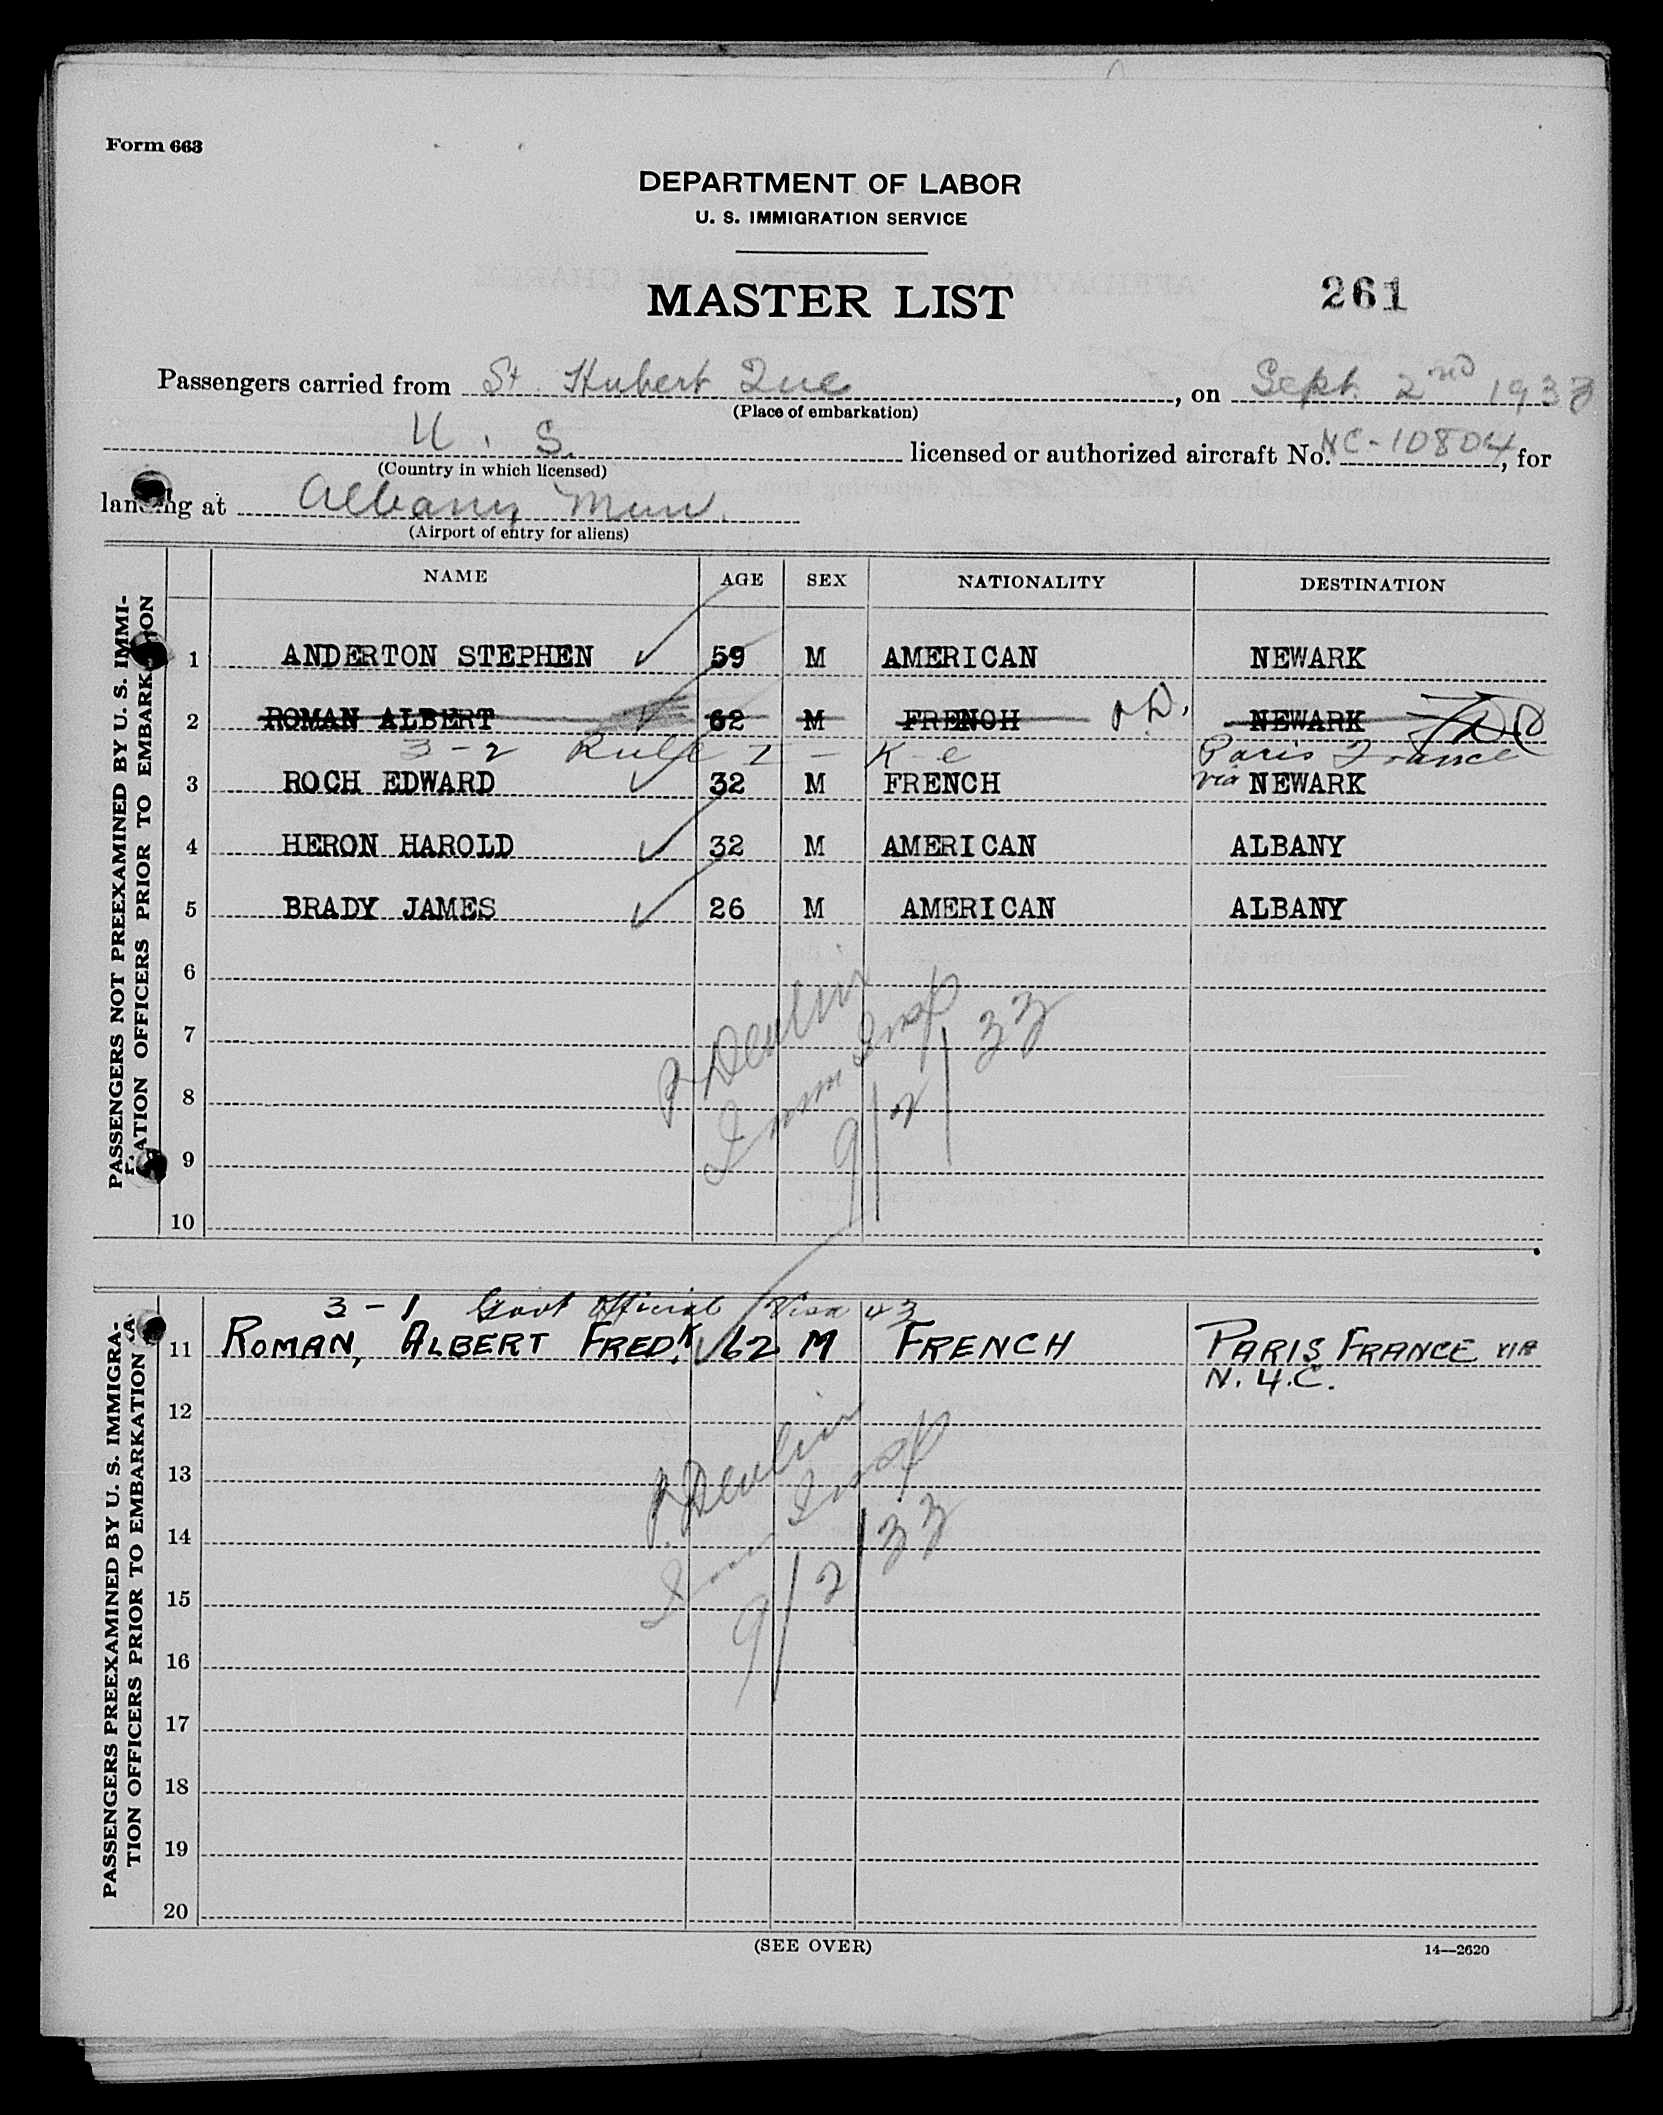 Form 663
DEPARTMENT OF LABOR
U. S. IMMIGRATION SERVICE
MASTER LIST
261
Passengers carried from St. Hubert Que, on Sept. 2nd 1933
(Place of embarkation)
U. S. licensed or authorized aircraft No. NC-10804, for
(Country in which licensed)
landing at Albany Mun.
(Airport of entry for aliens)
PASSENGERS NOT PREEXAMINED BY U. S. IMMI-
GRATION OFFICERS PRIOR TO EMBARKATION
NAME AGE SEX NATIONALITY DESTINATION
1 ANDERTON STEPHEN 59 M AMERICAN NEWARK
2 ROMAN ALBERT 62 M FRENCH P.D. NEWARK
3-2 Rule I - K-e Paris France
3 ROCH EDWARD 32 M FRENCH via NEWARK
4 HERON HAROLD 32 M AMERICAN ALBANY
5 BRADY JAMES 26 M AMERICAN ALBANY
6
7
8
9
10
P Devlin
Imm Insp
9/2/33
PASSENGERS PREEXAMINED BY U. S. IMMIGRA-
TION OFFICERS PRIOR TO EMBARKATION
3-1 Govt Official Visa 43
11 ROMAN, ALBERT FREDK. 62 M FRENCH PARIS FRANCE VIA
N.Y.C.
12
13
14
15
16
17
18
19
20
P. Devlin
Imm Insp
9/2/33
(SEE OVER)
14—2620